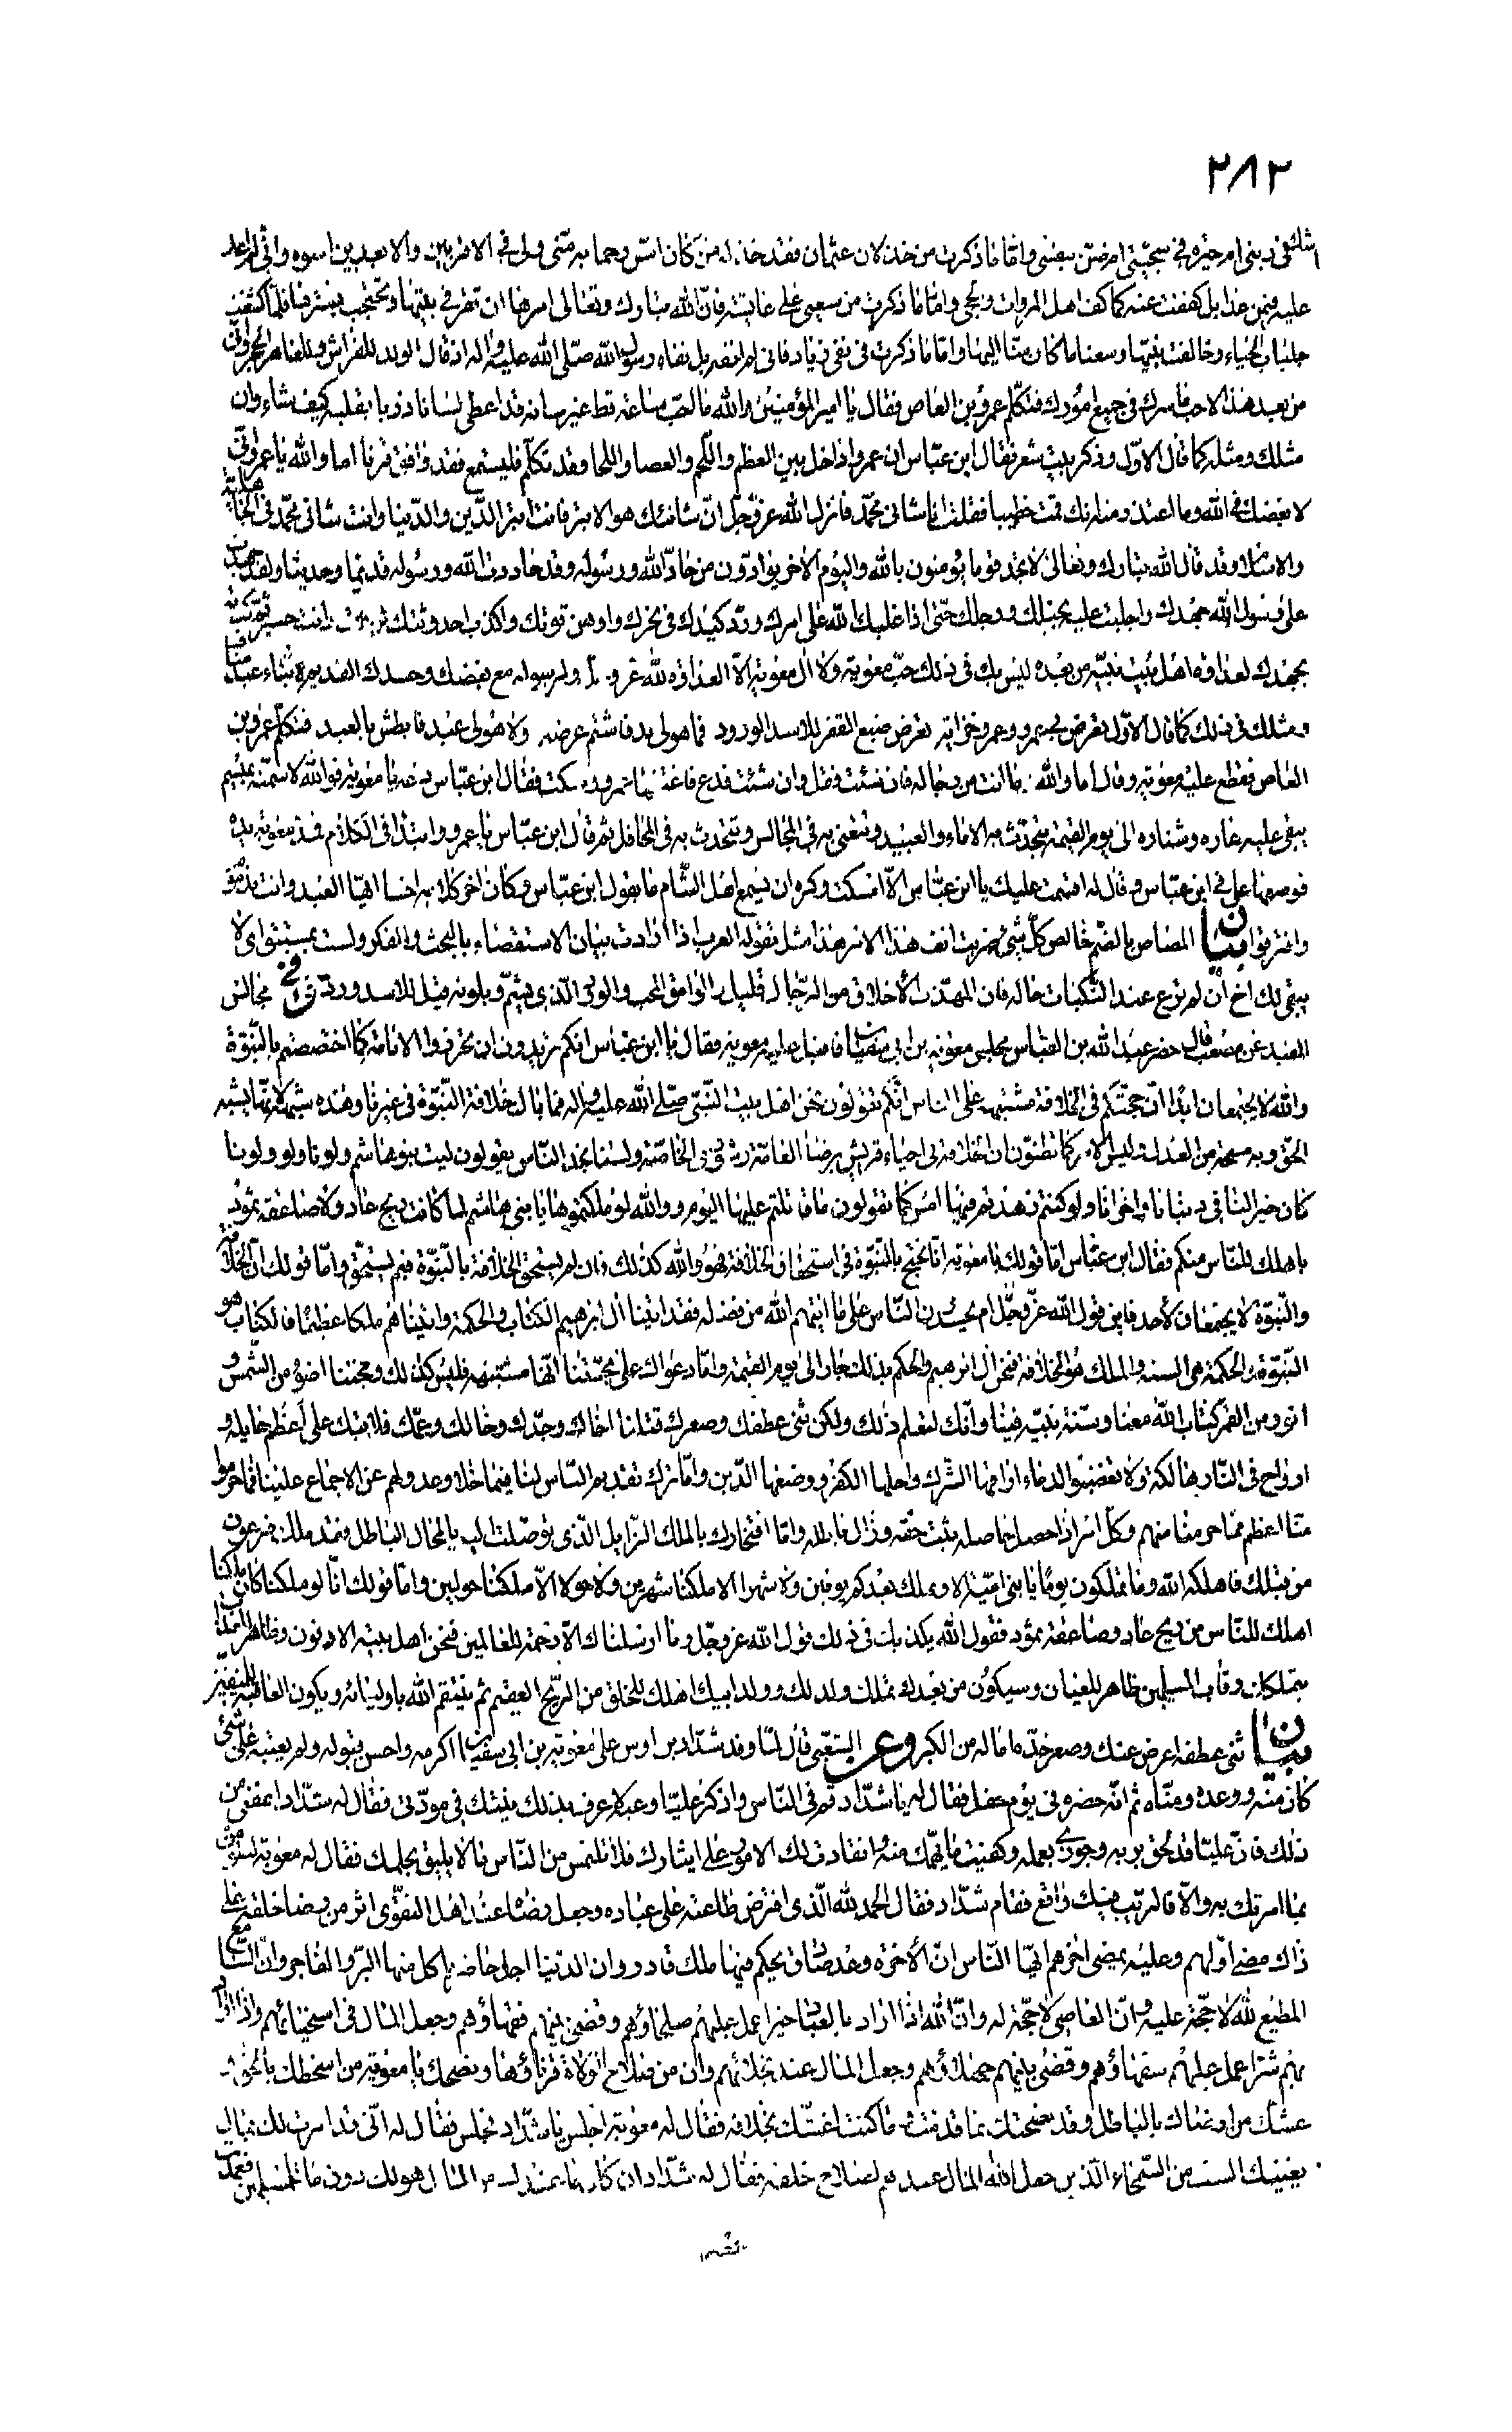 ٢٨٢
اشك في ديني ام حيرة في سجيتي ام ضن بنفسي واما ما ذكرت من خذلان عثمان فقد خذله من كان امس رحما به مني ولي في الاقربين والابعدين اسوة واني لم اعد
عليه فيمن عدا بل كففت عنه كما كف اهل المروات والحجى واما ما ذكرت من سعيي على عايشة فان الله تبارك وتعالى امرها ان تقر في بيتها وتحتجب بسترها فلما كشفت
جلباب الحياء وخالفت نبيها وسعنا ما كان منا اليها واما ما ذكرت من نفي زياد فاني لم انفه بل نفاه رسول الله صلى الله عليه واله اذ قال الولد للفراش وللعاهر الحجر واني
من بعد هذا لاحب ما سرك في جميع امورك فتكلم عمرو بن العاص فقال يا امير المؤمنين والله ما احبك ساعة قط غير انه قد اعطي لسانا ذربا يقلبه كيف شاء وان
مثلك ومثله كما قال الاول وذكر بيت شعر فقال ابن عباس ان عمرا داخل بين العظم واللحم والعصا واللحا وقد تكلم فليستمع فقد وافق قرنا اما والله يا عمرو اني
لابغضك في الله وما اعتذر منه انك قمت خطيبا فقلت انا شانئ محمد فانزل الله عز وجل ان شانئك هو الابتر فانت ابتر الدين والدنيا وانت شانئ محمد في الجاهلية
والاسلام وقد قال الله تبارك وتعالى لا تجد قوما يؤمنون بالله واليوم الاخر يوادون من حاد الله ورسوله وقد حاددت الله ورسوله قديما وحديثا ولقد جهدت
على رسول الله جهدك واجلبت عليه بخيلك ورجلك حتى اذا غلبك الله على امرك ورد كيدك في نحرك واوهن قوتك واكذب احدوثتك نزعت وانت حسير
بجهدك لعداوة اهل بيت نبيه من بعده ليس بك في ذلك حب معوية ولا ال معوية الا العداوة لله عز وجل ولرسوله مع بغضك وحسدك القديم لابناء عبد مناف
ومثلك في ذلك كما قال الاول تعرض لي عمرو وعمرو خزاية تعرض ضبع القفر للاسد الورد فما هو لي ند فاشتم عرضه ولا هو لي عبد فابطش بالعبد فتكلم عمرو بن
العاص فقطع عليه معوية وقال اما والله يا عمرو ما انت من رجاله فان شئت فقل وان شئت فدع فاغتنمها عمرو وسكت فقال ابن عباس دعه يا معوية فوالله لاسمنه بميسم
يبقى عليه عاره وشناره الى يوم القيمة يتحدث به الاماء والعبيد ويتغنى به في المجالس ويتحدث به في المحافل ثم قال ابن عباس يا عمرو وابتدا في الكلام فمد معوية يده
فوضعها على في ابن عباس وقال له اقسمت عليك يا ابن عباس الا امسكت وكره ان يسمع اهل الشام ما يقول ابن عباس وكان اخر كلامه اخسا ايها العبد وانت مذموم
وافترقوا بيان المصاص بالضم خالص كل شيء ضربت انف هذا الامر هذا مثل تقوله العرب اذا ارادت بيان الاستقصاء بالبحث والفكر ولست بمستبق اي لا
يبقى لك اخ ان لم ترع عند النكبات حاله فان المهذب الاخلاق من الرجال قليل الوامق المحب والولي الذي يشم ويلونه قيل للاسد ورد مجالس
المفيد عن مصعب قال حضر عبد الله بن العباس مجلس معوية بن ابي سفيان فاقبل عليه معوية فقال يا ابن عباس انكم تريدون ان تحرزوا الامامة كما اختصصتم بالنبوة
والله لا يجتمعان ابدا ان حجتكم في الخلافة مشتبهة على الناس انكم تقولون نحن اهل بيت النبي صلى الله عليه واله فما بال خلافة النبوة في غيرنا وهذه شبهة لانها يشبه
الحق وبه مسحة من العدل وليس الامر كما تظنون ان الخلافة في احياء قريش برضا العامة وشورى الخاصة ولسنا نجد الناس يقولون ليت بني هاشم ولونا ولو ولونا
كان خيرا لنا في دنيانا واخرانا ولو كنتم زهدتم فيها امس كما تقولون ما قاتلتم عليها اليوم ووالله لو ملكتموها يا بني هاشم لما كانت ريح عاد ولا صاعقة ثمود
باهلك للناس منكم فقال ابن عباس اما قولك يا معوية انا نحتج بالنبوة في استحقاق الخلافة فهو والله كذلك فان لم يستحق الخلافة بالنبوة فبم يستحق واما قولك ان الخلافة
والنبوة لا يجتمعان لاحد فاين قول الله عز وجل ام يحسدون الناس على ما اتيهم الله من فضله فقد اتينا ال ابرهيم الكتاب والحكمة واتيناهم ملكا عظيما فالكتاب هو
النبوة والحكمة هي السنة والملك هو الخلافة فنحن ال ابرهيم والحكم بذلك جار الى يوم القيمة واما دعواك على حجتنا انها مشتبهة فليس كذلك وحجتنا اضوء من الشمس و
انور من القمر كتاب الله معنا وسنة نبيه فينا وانك لتعلم ذلك ولكن ثنى عطفك وصعرك قتلنا اخاك وجدك وخالك وعمك فلا تبك على اعظم حايلة و
ارواح في النار هالكة ولا تغضبوا لدماء اراقها الشرك واحلها الكفر ووضعها الدين واما ترك تقديم الناس لنا فيما خلا وعدولهم عن الاجماع علينا فما حرموا
منا اعظم مما حرمنا منهم وكل امر اذا حصل حاصله ثبت حقه وزال باطله واما افتخارك بالملك الزايل الذي توصلت اليه بالمحال الباطل فقد ملك فرعون
من قبلك فاهلكه الله وما تملكون يوما يا بني امية الا ونملك بعدكم يومين ولا شهرا الا ملكنا شهرين ولا حولا الا ملكنا حولين واما قولك انا لو ملكنا كان ملكنا
اهلك للناس من ريح عاد وصاعقة ثمود فقول الله يكذبك في ذلك قول الله عز وجل وما ارسلناك الا رحمة للعالمين فنحن اهل بيته الادنون وظاهر العذاب
بتملكك رقاب المسلمين ظاهر للعيان وسيكون من بعدك تملك ولدك وولد ابيك اهلك للخلق من الريح العقيم ثم ينتقم الله باوليائه ويكون العاقبة للمتقين
بيان ثنى عطفه اعرض عنك وصعر خده اماله من الكبر وعن الشعبي قال لما وفد شداد بن اوس على معوية بن ابي سفيان اكرمه واحسن قبوله ولم يعتبه على شيء
كان منه ووعده ومناه ثم انه حضره في يوم حفل فقال له يا شداد قم في الناس واذكر عليا وعبه لاعرف بذلك نيتك في مودتي فقال له شداد اعفني من
ذلك فان عليا قد لحق بربه وجوزي بعمله وكفيت ما يهمك منه وانقادت لك الامور على ايثارك فلا تلتمس من الناس ما لا يليق بحلمك فقال له معوية لتقومن
بما امرتك به والا فالريب فيك واقع فقام شداد فقال الحمد لله الذي افترض طاعته على عباده وجعل رضاه عند اهل التقوى اثر من رضا خلقه على
ذاك مضى اولهم وعليه يمضي اخرهم ايها الناس ان الاخرة وعد صادق يحكم فيها ملك قادر وان الدنيا اجل حاضر ياكل منها البر والفاجر وان السامع
المطيع لله لا حجة عليه وان العاصي لا حجة له وان الله اذا اراد بالعباد خيرا عمل عليهم صلحاؤهم وقضى بينهم فقهاؤهم وجعل المال في اسخيائهم واذا اراد
بهم شرا عمل عليهم سفهاؤهم وقضى بينهم جهلاؤهم وجعل المال عند بخلائهم وان من صلاح الولاة قرناؤها ونصحك يا معوية من اسخطك بالحق و
غشك من ارضاك بالباطل وقد نصحتك بما قدمت وما كنت اغشك بخلافه فقال له معوية اجلس يا شداد فجلس فقال له اني قد امرت لك بمال
يغنيك الست من السمحاء الذين جعل الله المال عندهم لصلاح خلقه فقال له شداد ان كان ما عندك من المال هو لك دون ما للمسلمين فعمدت